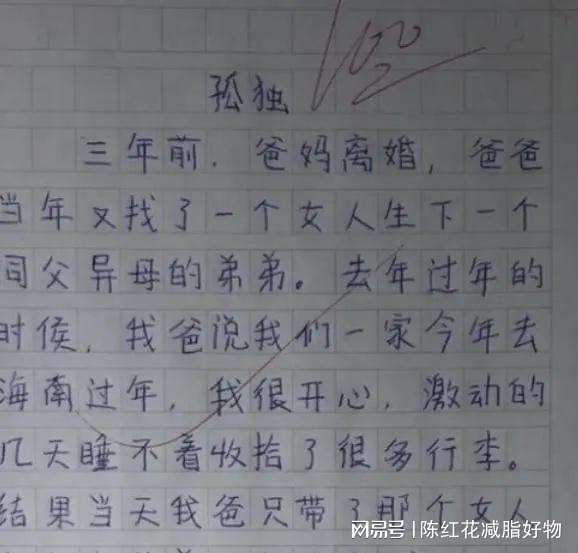 100
孤独
三年前，爸妈离婚，爸爸
当年又找了一个女人生下一个
同父异母的弟弟。去年过年的
时侯，我爸说我们一家今年去
海南过年，我很开心，激动的
几天睡不着收拾了很多行李。
结果当天我爸只带了那个女人
网易号 | 陈红花减脂好物